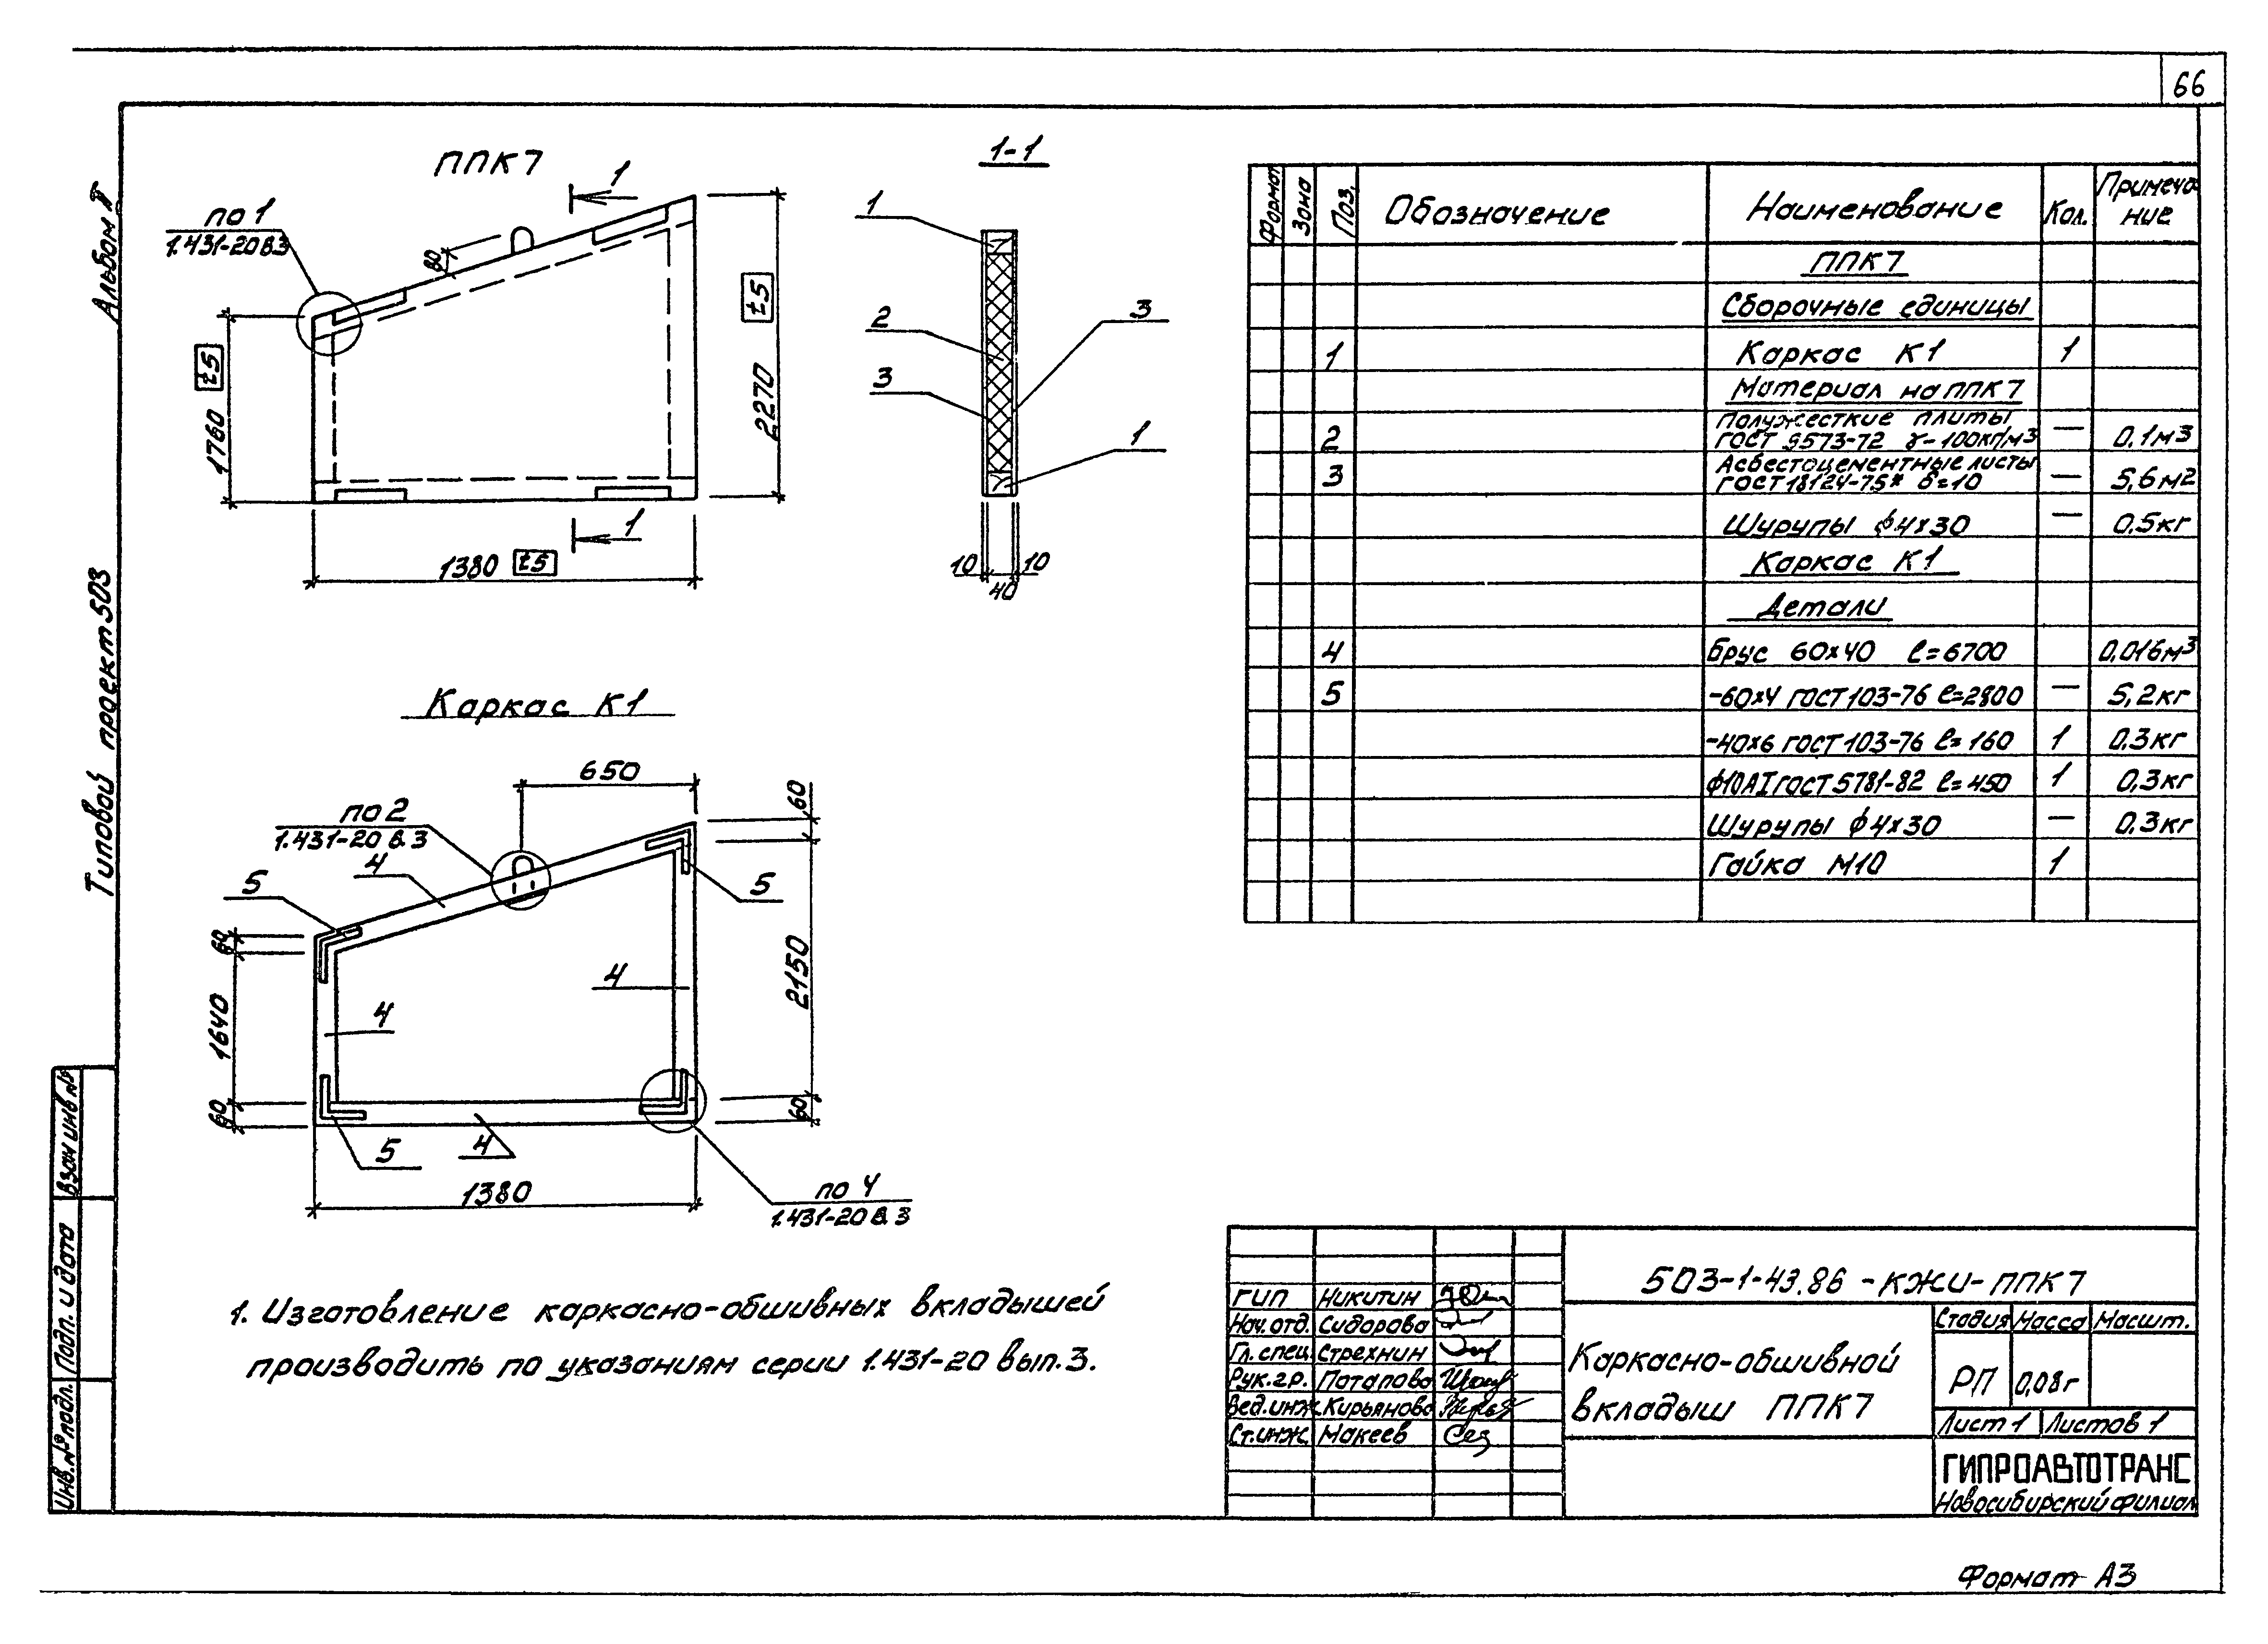 66
Альбом
Типовой проект 503
Взам инв №
Подп. и дата
Инв. № подл.
ППК7
1
по 1
1.431-20 в.3
80
±5
1760
±5
2270
1
1380 ±5
1-1
1
2
3
3
1
10
40
10
Каркас К1
650
60
по 2
1.431-20 в.3
4
5
5
60
2150
4
1640
4
60
60
5
4
1380
по 4
1.431-20 в.3
1. Изготовление каркасно-обшивных вкладышей
производить по указаниям серии 1.431-20 вып.3.
Формат Зона Поз. Обозначение Наименование Кол. Примеча-
ние
ППК7
Сборочные единицы
1 Каркас К1 1
Материал на ППК7
Полужесткие плиты
2 ГОСТ 9573-72 γ-100кг/м3 — 0,1м3
Асбестоцементные листы
3 ГОСТ 18124-75* δ=10 — 5,6м2
Шурупы ϕ4х30 — 0,5кг
Каркас К1
Детали
4 Брус 60х40 ℓ=6700 0,016м3
5 -60х4 ГОСТ 103-76 ℓ=2800 — 5,2кг
-40х6 ГОСТ 103-76 ℓ=160 1 0,3кг
ϕ10АI ГОСТ 5781-82 ℓ=450 1 0,3кг
Шурупы ϕ4х30 — 0,3кг
Гайка М10 1
503-1-43.86 -КЖИ-ППК7
ГИП Никитин
Нач.отд. Сидорова
Гл.спец. Стрехнин
Рук.гр. Потапова
Вед.инж. Кирьянова
Ст.инж. Макеев
Каркасно-обшивной
вкладыш ППК7
Стадия Масса Масшт.
РП 0,08т
Лист 1 Листов 1
ГИПРОАВТОТРАНС
Новосибирский филиал
Формат А3